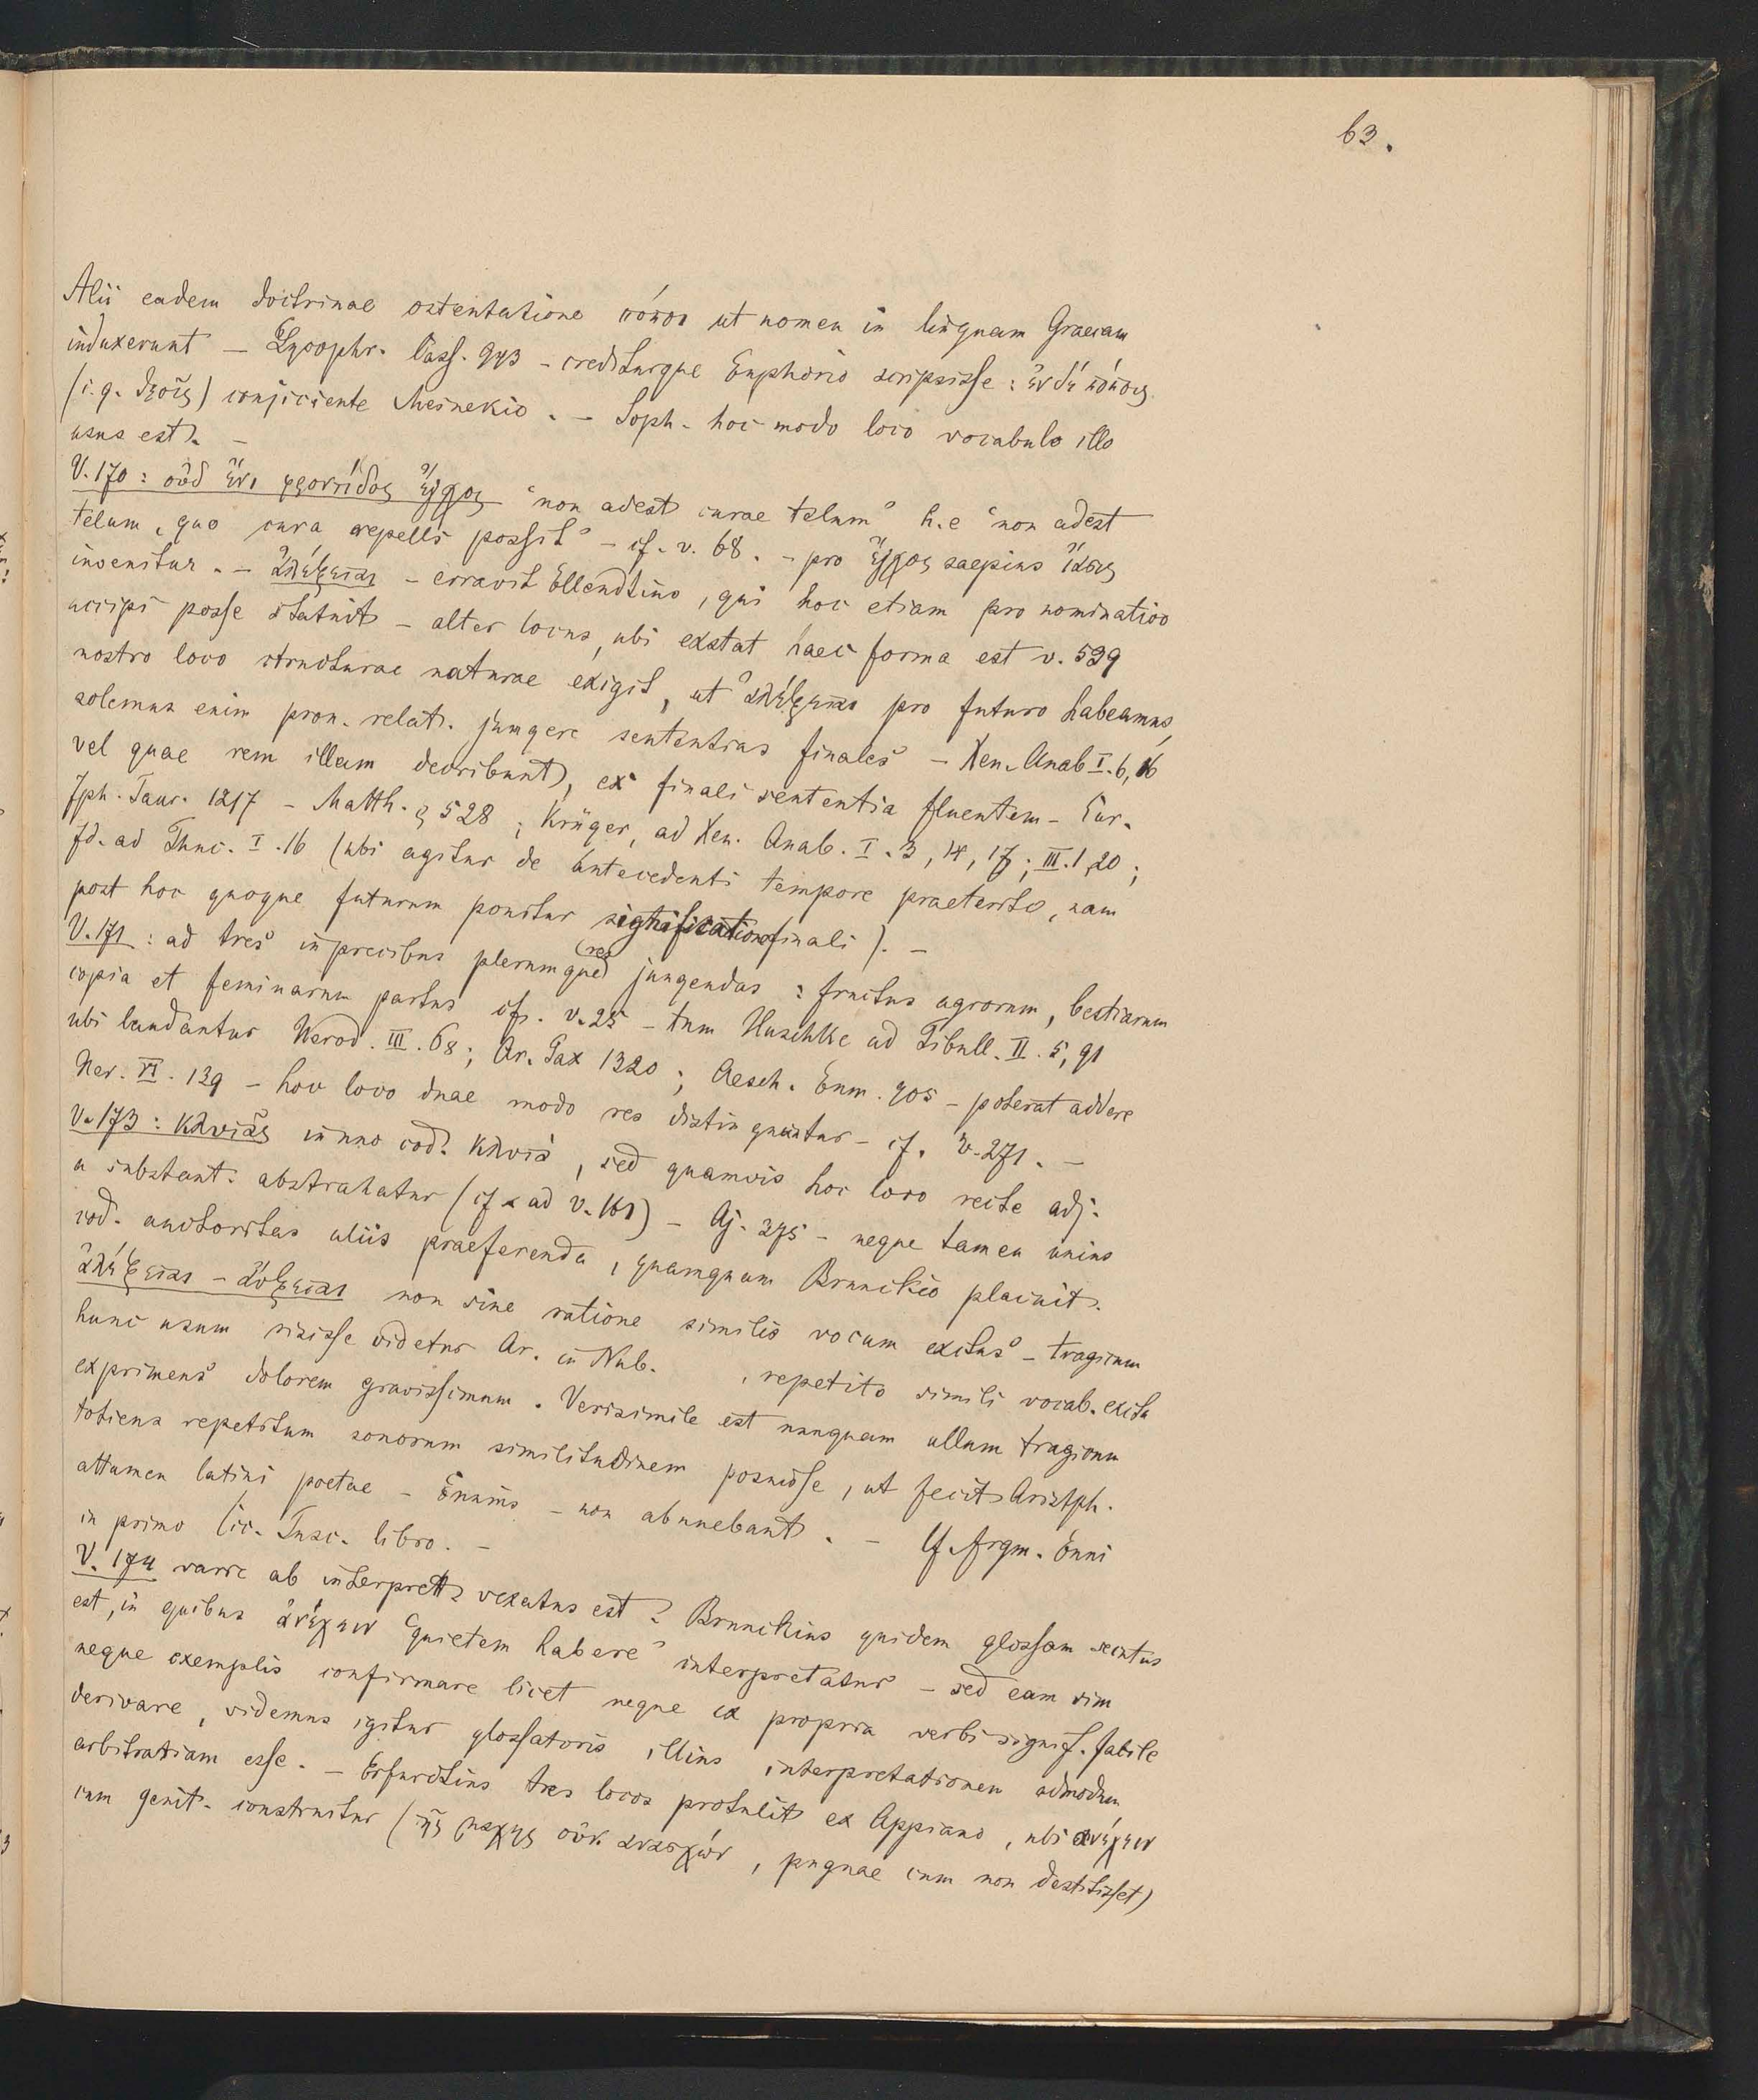 63.
Alii eadem doctrinae ostentatione πόποι ut nomen in linguam Graecam
induxerunt – Lycophr. Cass. 943 – crediturque Euphorio scripsisse: ἐν δὲ πόποις
(i.q. θεοῖς) conjiciente Meinekio. – Soph. hoc modo loco vocabulo illo
usus est. –
V. 170: οὐδ ἔνι φροντίδος ἔγχος "non adest curae telum" h.e "non adest
telum, quo cura repelli possit" – cf. v. 68. – pro ἔγχος saepius
invenitur. – ἀλέξεται – erravit Ellendtius, qui hoc etiam pro nominativo
accipi posse statuit – alter locus, ubi exstat haec forma est v. 539
nostro loco structurae naturae exigit, ut ἀλέξεται pro futuro habeamus,
solemus enim pron. relat. jungere sententias finales – Xen. Anab I.6,16
vel quae rem illam describunt, ex finali sententia fluentem – Eur.
Iph. Taur. 1217 – Matth. § 528; Krüger, ad Xen. Anab. I.3, 14, 17; III.1,20;
Id. ad Thuc. I.16 (ubi agitur de antecedenti tempore praeterito, nam
post hoc quoque futurum ponitur significatione finali). –
V. 171: ad tres in precibus plerumque (res) jungendas: fructus agrorum, bestiarum
copia et feminarum partus cfr. v. 25 – tum Huschke ad Tibull. II.5,91
ubi laudantur Herod. III.68; Ar. Pax 1320; Aesch. Eum. 905 – poterat addere
Her. VI.139 – hoc loco duae modo res distinguuntur – cf. v. 271. –
V. 173: κλυτᾶς in uno cod. κλυτὰ, sed quamvis hoc loco recte adj.
a substant. abstrahatur (cf ad v. 161) – Aj. 375 – neque tamen unius
cod. auctoritas aliis praeferenda, quamquam Brunckio placuit.
ἀλέξεται – αὔξεται non sine ratione similis vocum exitus – tragicum
hunc usum risisse videtur Ar. in Nub. , repetito simili vocab. exitu
exprimens dolorem gravissimum. Verisimile est nunquam ullum tragicum
totiens repetitum sonorum similitudinem posuisse, ut fecit Aristph.
attamen latini poetae – Ennius – non abnuebant. – Cf. frgm. Enni
in primo Cic. Tusc. libro. –
V. 174 varie ab interprett vexatus est. Brunckius quidem glossam secutus
est, in quibus ἀνέχειν "quietem habere" interpretatur – sed eam vim
neque exemplis confirmare licet neque ex propria verbi signif. facile
derivare, videmus igitur glossatoris illius interpretationem admodum
arbitrariam esse. – Erfurdtius tres locos protulit ex Appiano, ubi ἀνέχειν
cum genit. construitur (τῆς μαχης οὐκ ανασχών, pugnae cum non destitisset)